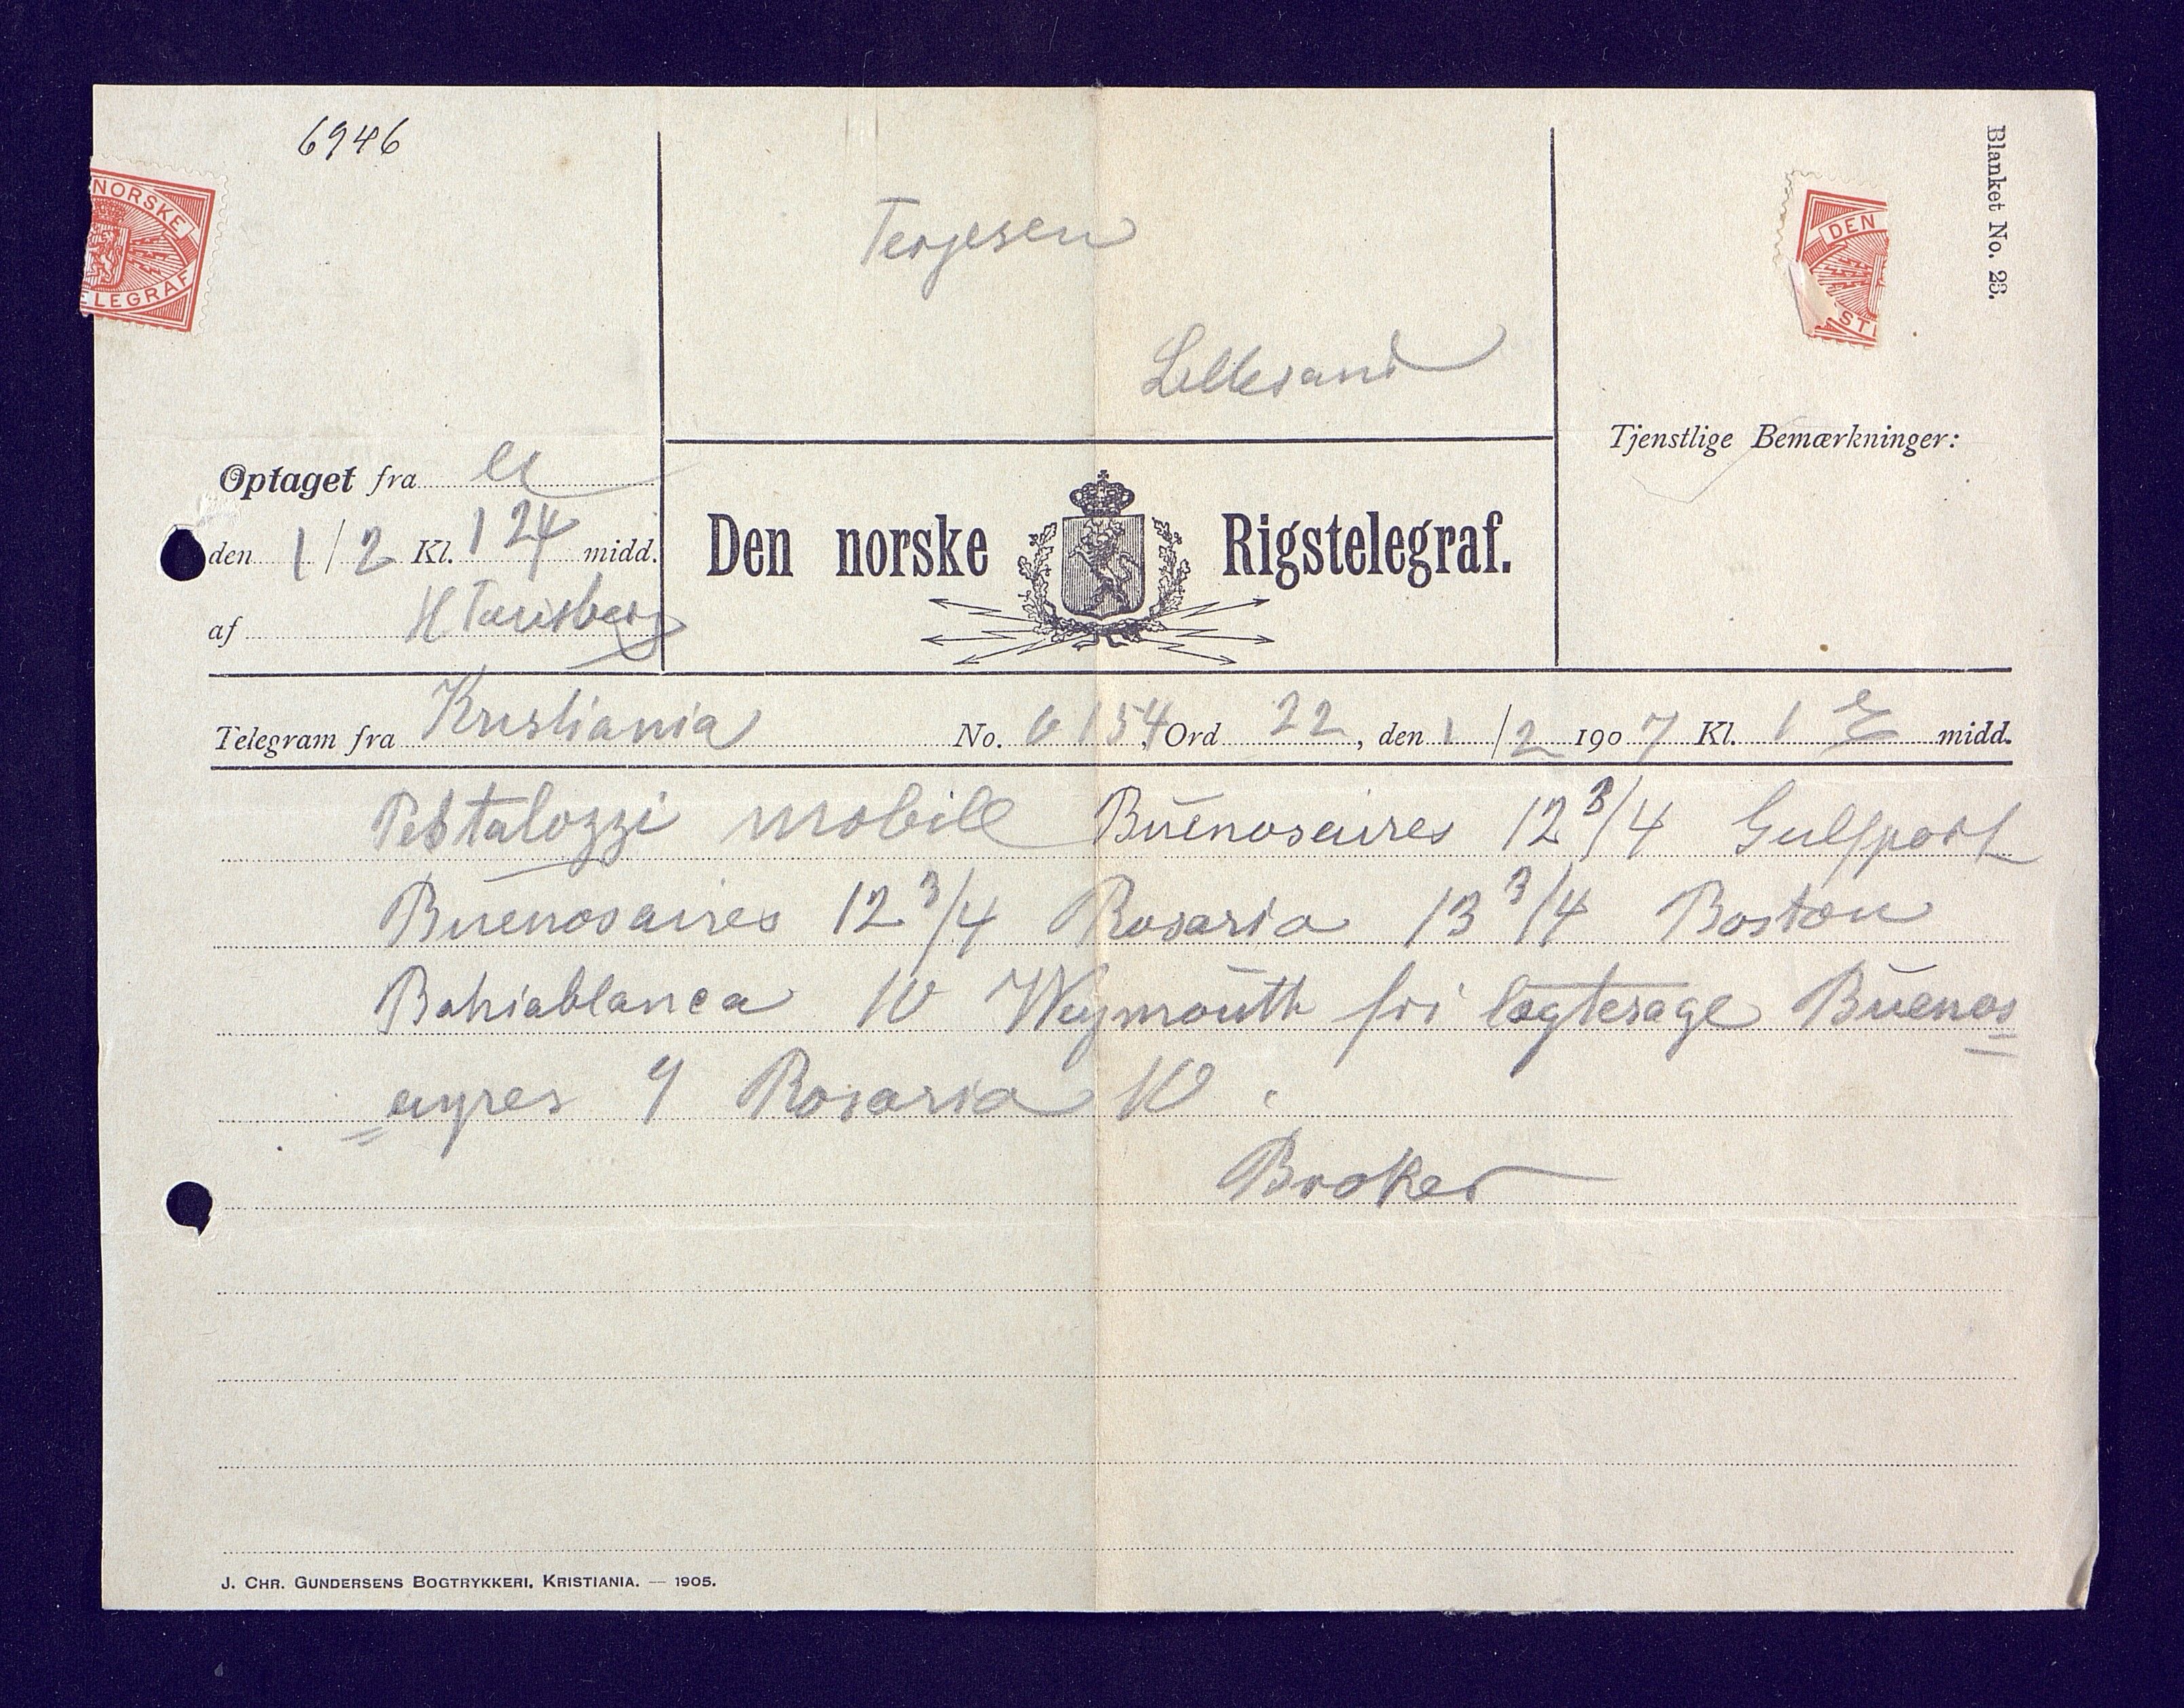 6946
NORSKE
ELEGRAF
Terjesen
Lillesand
DEN
ST
Blanket No. 23.
Tjenstlige Bemærkninger:
Optaget fra
den 1/2 Kl. 1 24 midd.
af H
Den norske Rigstelegraf.
Telegram fra Kristiania No. 6154 Ord 22, den 1/2 1907 Kl. 1 E midd.
Pestalozzi mobile Buenosaires 12 3/4 Gulfport
Buenosaires 12 3/4 Rosaria 13 3/4 Boston
Bahiablanca 10 Weymouth fri lægterage Buenos
ayres 9 Rosaria 10.
Broker
J. CHR. GUNDERSENS BOGTRYKKERI, KRISTIANIA. — 1905.